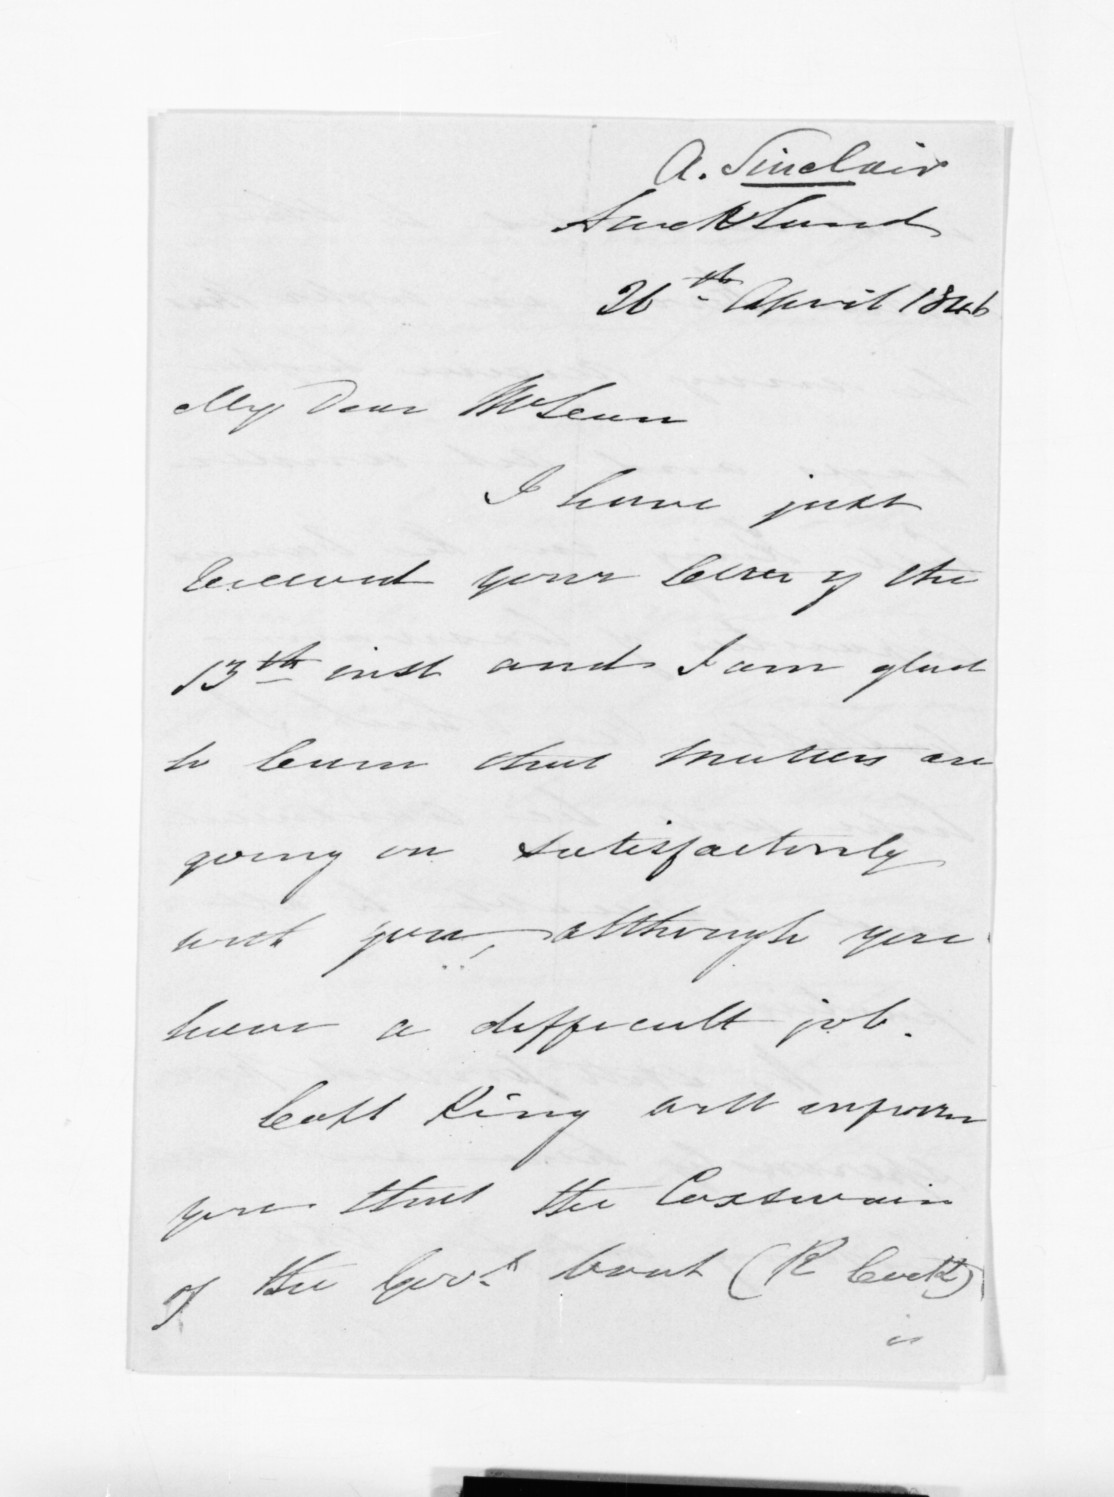 A. Sinclair
Auckland
26th April 1846
My Dear McLean
I have just
received your letter of the
13th inst and I am glad
to learn that matters are
going on satisfactorily
with you, although you
have a difficult job.
Capt King will inform
you that the Coxswain
of the Govt. boat (R Cock)
is